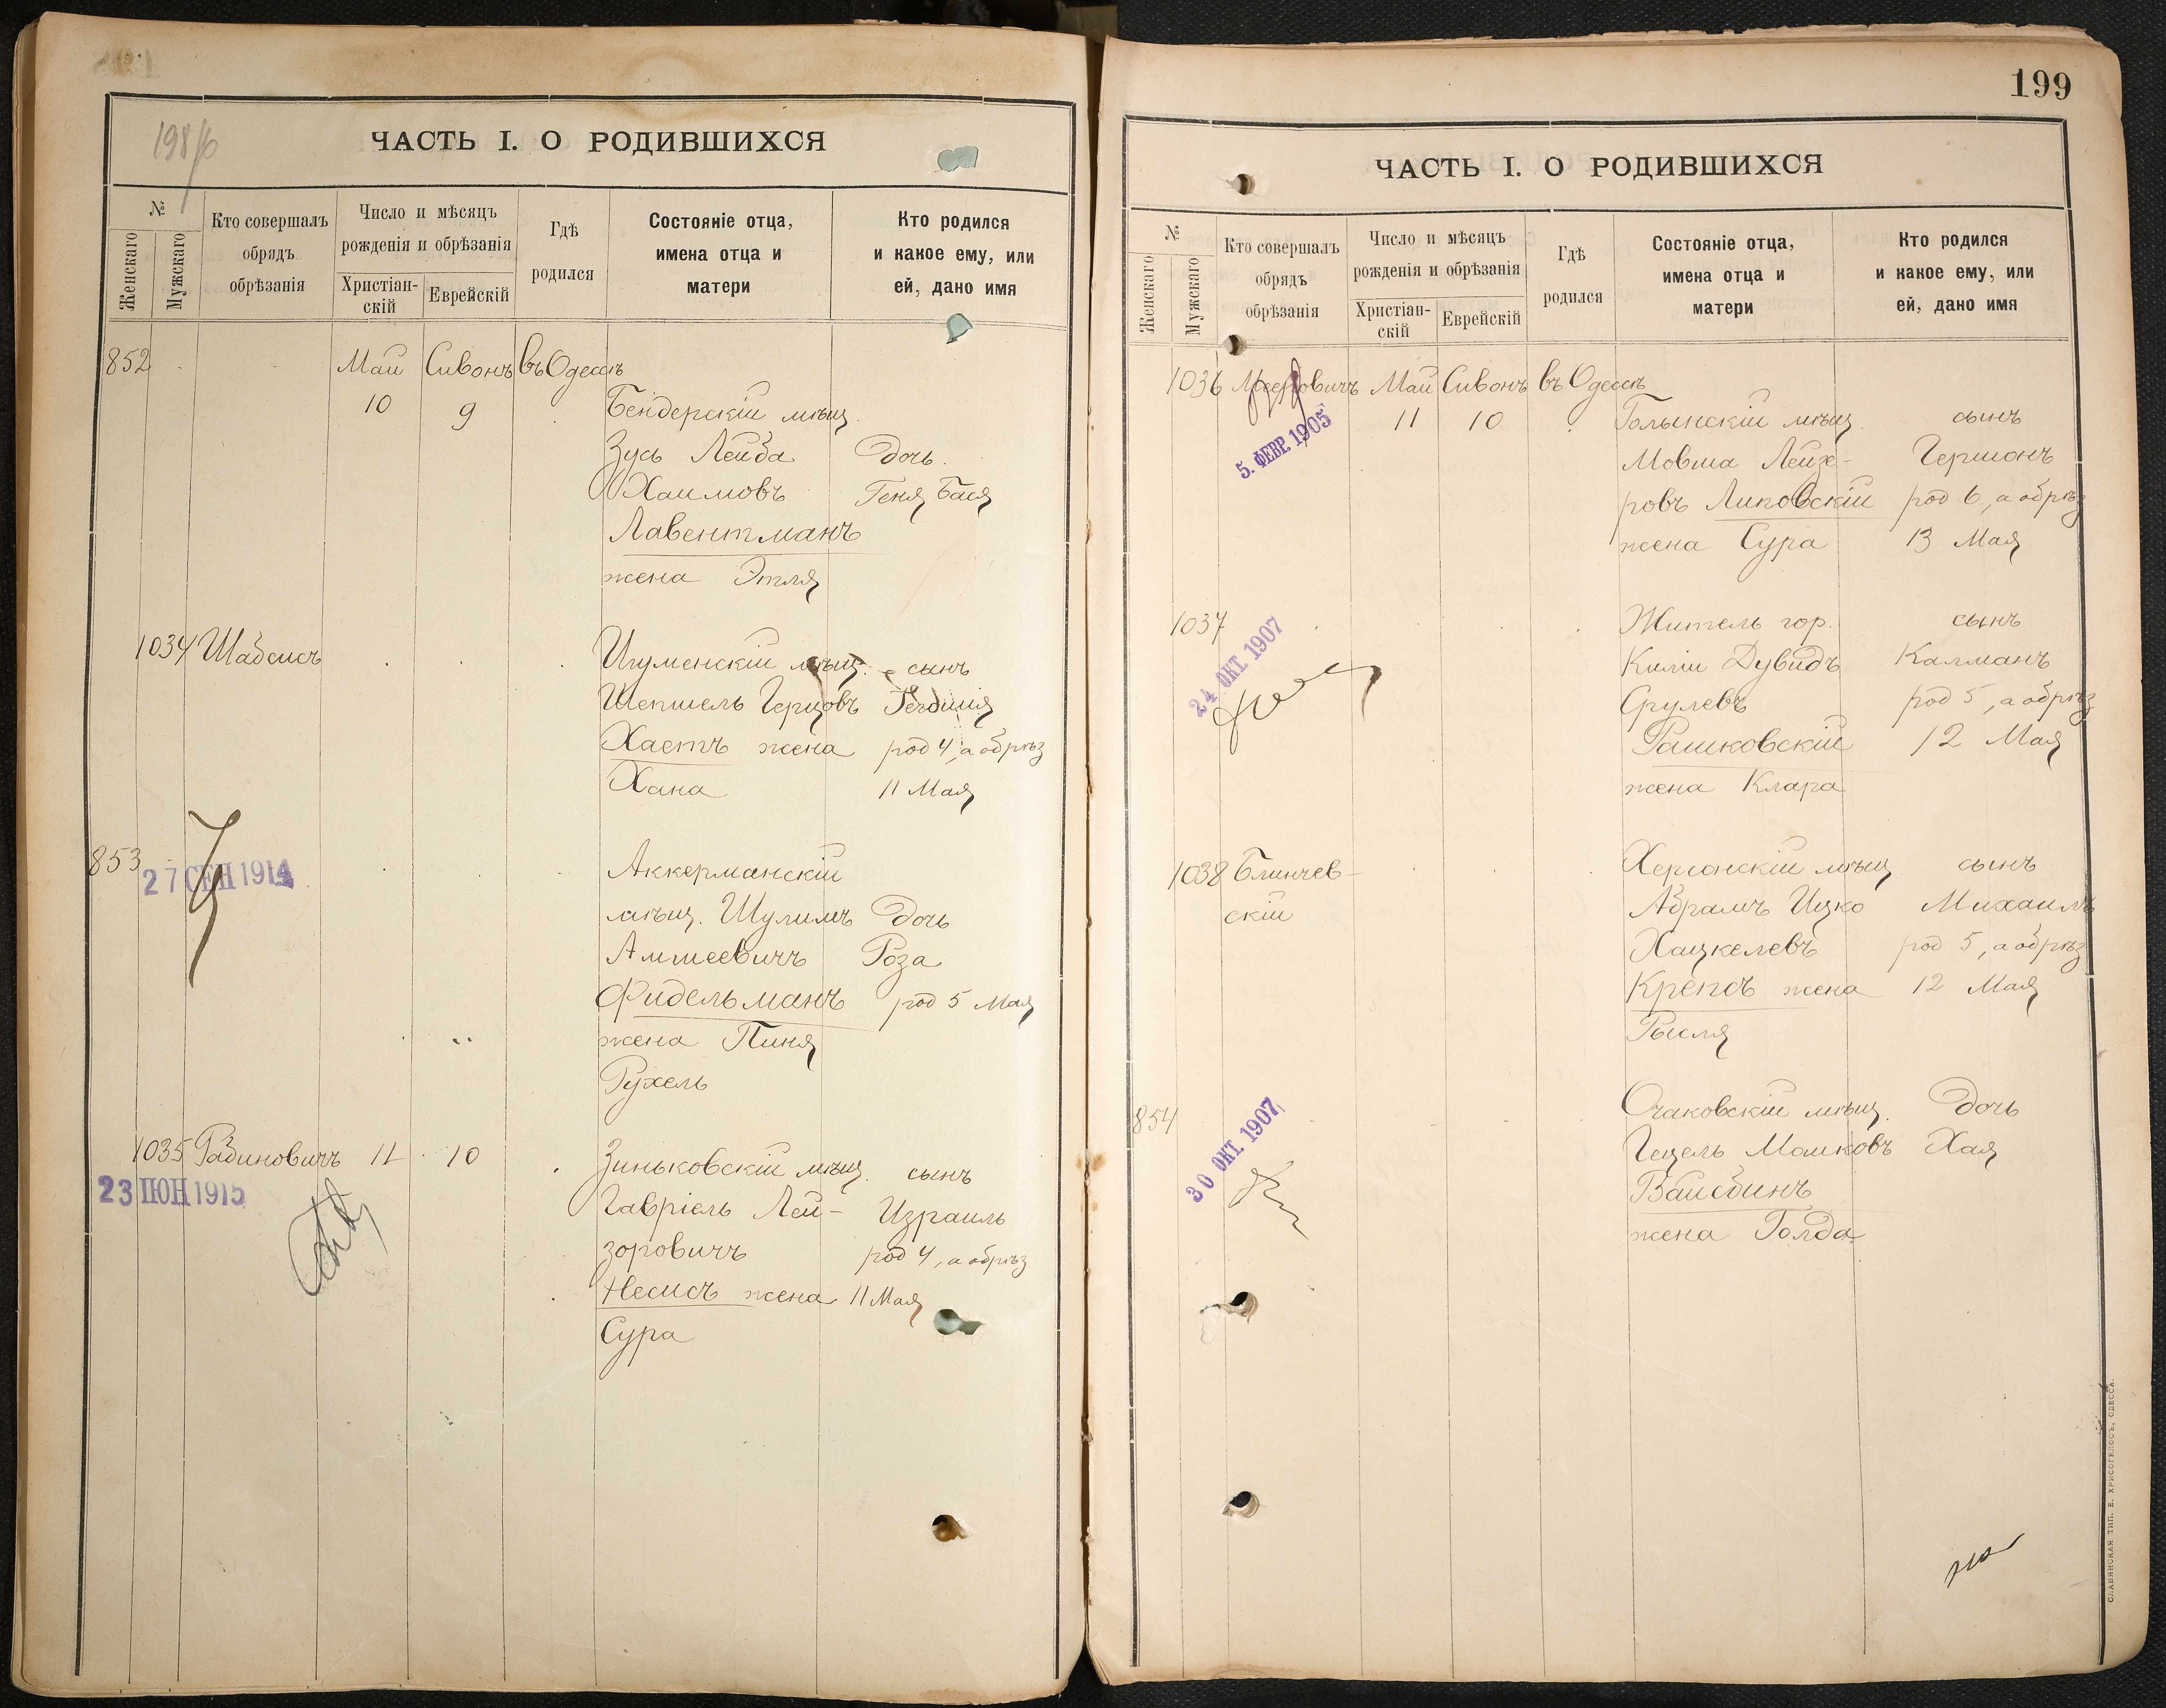 198/б
ЧАСТЬ I. О РОДИВШИХСЯ
№
Женскаго
Мужскаго
Кто совершалъ
обрядъ
обрѣзанія
Число и мѣсяцъ
рожденія и обрѣзанія
Христіан-
скій
Еврейскій
Гдѣ
родился
Состояніе отца,
имена отца и
матери
Кто родился
и какое ему, или
ей, дано имя
852 Май Сивонъ въ Одессѣ
10 9 Бендерскій мѣщ.
Зусь Лейба Дочь
Хаимовъ Геня Бася
Лавентманъ
жена Этля
1034 Шабсисъ Игуменскій мѣщ. сынъ
Шепшель Герцовъ Гедалія
Хаетъ жена род 4, а обрѣз
Хана 11 Мая
853 Аккерманскій
27 СЕН 1914
мѣщ. Шулимъ Дочь
Аншеевичъ Роза
Фидельманъ род 5 Мая
жена Пиня
Рухель
1035 Рабиновичъ 11 10 Зиньковскій мѣщ. сынъ
23 ІЮН 1915
Гавріель Лей- Израиль
зоровичъ род 4, а обрѣз
Несисъ жена 11 Мая
Сура
199
ЧАСТЬ I. О РОДИВШИХСЯ
№
Женскаго
Мужскаго
Кто совершалъ
обрядъ
обрѣзанія
Число и мѣсяцъ
рожденія и обрѣзанія
Христіан-
скій
Еврейскій
Гдѣ
родился
Состояніе отца,
имена отца и
матери
Кто родился
и какое ему, или
ей, дано имя
1036 Мееровичъ Май Сивонъ въ Одессѣ
5. ФЕВР. 1905
11 10 Голынскій мѣщ. сынъ
Мовша Лейзе- Гершонъ
ровъ Липовскій род 6, а обрѣз
жена Сура 13 Мая
1037 Житель гор. сынъ
24 ОКТ. 1907
Киліи Дувидъ Калманъ
Срулевъ род 5, а обрѣз
Рашковскій 12 Мая
жена Клара
1038 Блинчев- Херсонскій мѣщ сынъ
скій Абрамъ Ицко Михаилъ
Хацкелевъ род 5, а обрѣз
Крепсъ жена 12 Мая
Рысля
854 Очаковскій мѣщ. Дочь
30 ОКТ. 1907
Гецель Мошковъ Хая
Вайсбинъ
жена Голда
СЛАВЯНСКАЯ ТИП. Е. ХРИСОГЕЛОСЪ, ОДЕССА.